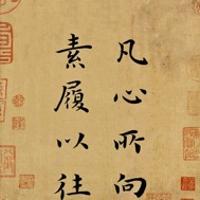 凡心所向
素履以往